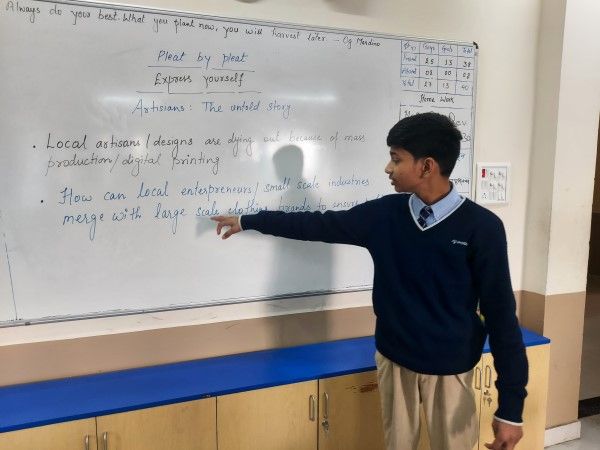 Always do your best. What you plant now, you will harvest later - Og Mandino
Pleat by pleat
Express yourself
Artisians: The untold story
• Local artisans/designs are dying out because of mass
production/digital printing
• How can local enterpreneurs/small scale industries
merge with large scale clothing brands to
Boys Girls Total
25 13 38
02 00 02
Total 27 13 40
Home Work